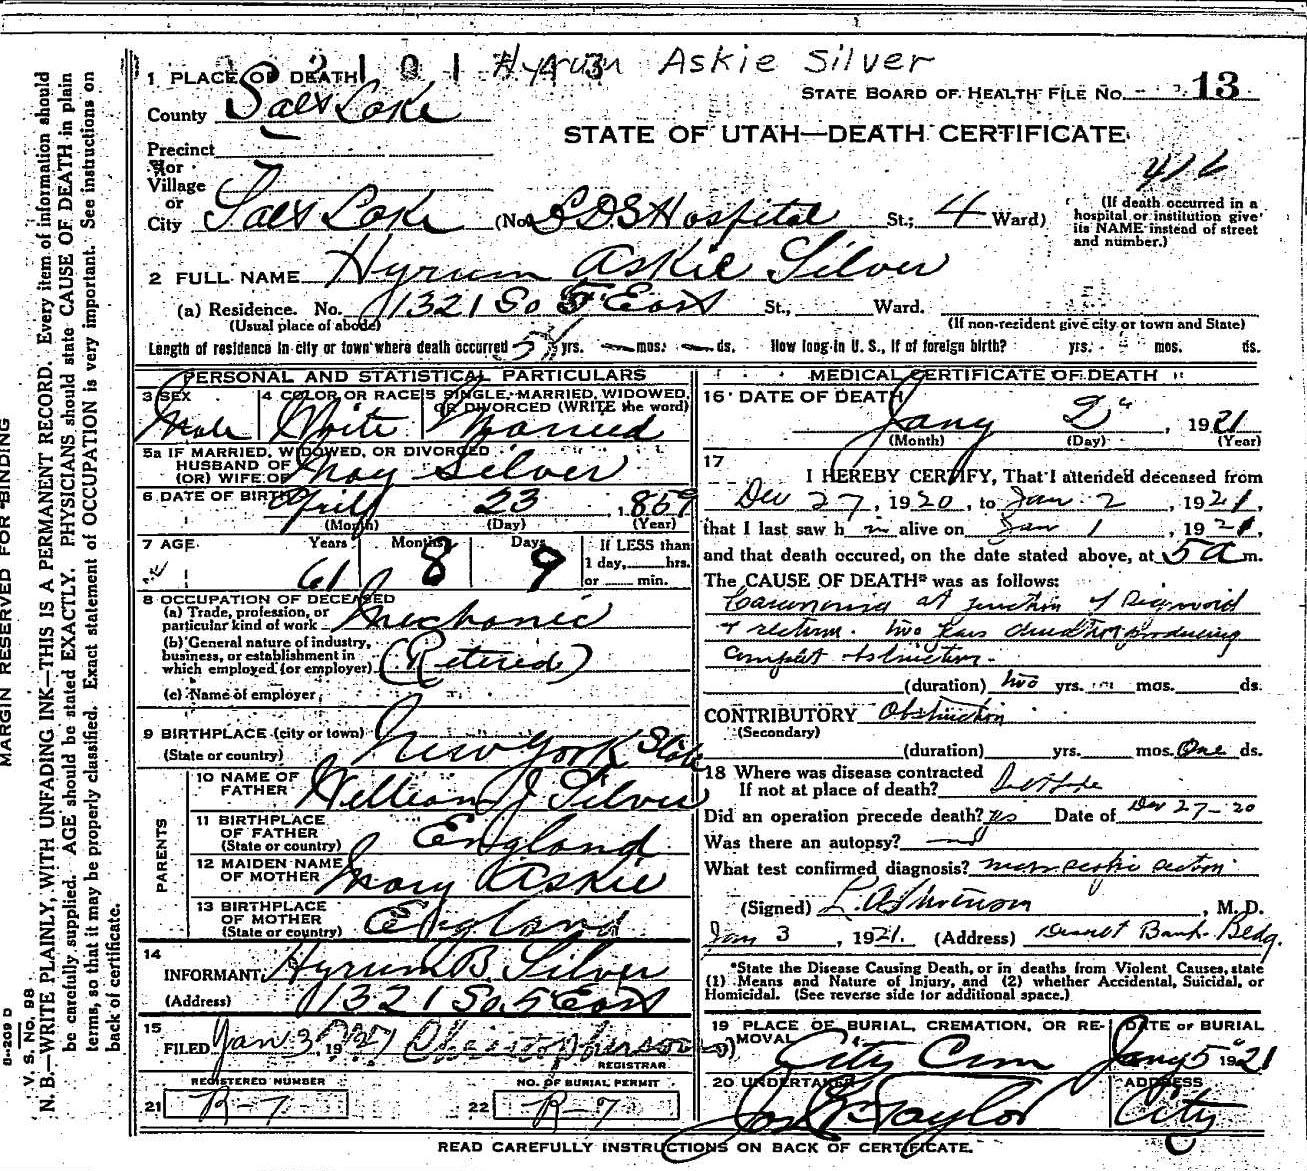 Hyrum Askie Silver
1 PLACE OF DEATH
STATE BOARD OF HEALTH FILE NO. 13
County Salt Lake
STATE OF UTAH—DEATH CERTIFICATE
Precinct
or
Village
or
416
City Salt Lake (No. L.D.S Hospital St.; 4 Ward)
(If death occurred in a
hospital or institution give
its NAME instead of street
and number.)
2 FULL NAME Hyrum Askie Silver
(a) Residence. No. 1321 So 5 East St., Ward.
(Usual place of abode) (If non-resident give city or town and State)
Length of residence in city or town where death occurred yrs. — mos. — ds. How long in U. S., if of foreign birth? yrs. mos. ds.
PERSONAL AND STATISTICAL PARTICULARS
3 SEX 4 COLOR OR RACE 5 SINGLE, MARRIED, WIDOWED,
OR DIVORCED (WRITE the word)
Male White Married
5a IF MARRIED, WIDOWED, OR DIVORCED
HUSBAND OF
(OR) WIFE OF May Silver
6 DATE OF BIRTH April 23, 1859
(Month) (Day) (Year)
7 AGE Years Months Days If LESS than
1 day, hrs.
or min.
61 8 9
8 OCCUPATION OF DECEASED
(a) Trade, profession, or
particular kind of work Mechanic
(b) General nature of industry,
business, or establishment in
which employed (or employer) (Retired)
(c) Name of employer
9 BIRTHPLACE (city or town)
(State or country) New York State
PARENTS
10 NAME OF
FATHER William J Silver
11 BIRTHPLACE
OF FATHER
(State or country) England
12 MAIDEN NAME
OF MOTHER Mary Askie
13 BIRTHPLACE
OF MOTHER
(State or country) England
14
INFORMANT Hyrum B. Silver
(Address) 1321 So. 5 East
15
FILED Jan 3, 1921 Christopherson
REGISTRAR
REGISTERED NUMBER NO. OF BURIAL PERMIT
21 R-7 22 R-7
MEDICAL CERTIFICATE OF DEATH
16 DATE OF DEATH
Jany 2", 1921
(Month) (Day) (Year)
17
I HEREBY CERTIFY, That I attended deceased from
Dec 27, 1920, to Jan. 2, 1921,
that I last saw h m alive on Jan 1, 1921,
and that death occured, on the date stated above, at 5 a m.
The CAUSE OF DEATH* was as follows:
Carcinoma at junction of Sigmoid
& rectum. two years duration producing
complete obstruction.
(duration) two yrs. mos. ds.
CONTRIBUTORY Obstruction
(Secondary)
(duration) yrs. mos. One ds.
18 Where was disease contracted
If not at place of death? Salt Lake
Did an operation precede death? yes Date of Dec 27-20
Was there an autopsy? no
What test confirmed diagnosis? microscopic section
(Signed) , M. D.
Jan 3, 1921. (Address) Deseret Bank Bldg.
*State the Disease Causing Death, or in deaths from Violent Causes, state
(1) Means and Nature of Injury, and (2) whether Accidental, Suicidal, or
Homicidal. (See reverse side for additional space.)
19 PLACE OF BURIAL, CREMATION, OR RE-
MOVAL City Cem
DATE OF BURIAL
Jany 5" 1921
20 UNDERTAKER ADDRESS
Jos E Taylor City
READ CAREFULLY INSTRUCTIONS ON BACK OF CERTIFICATE.
MARGIN RESERVED FOR BINDING
N. B.—WRITE PLAINLY, WITH UNFADING INK—THIS IS A PERMANENT RECORD. Every item of information should
be carefully supplied. AGE should be stated EXACTLY. PHYSICIANS should state CAUSE OF DEATH in plain
terms, so that it may be properly classified. Exact statement of OCCUPATION is very important. See instructions on
back of certificate.
V. S. No. 98
B-209 D